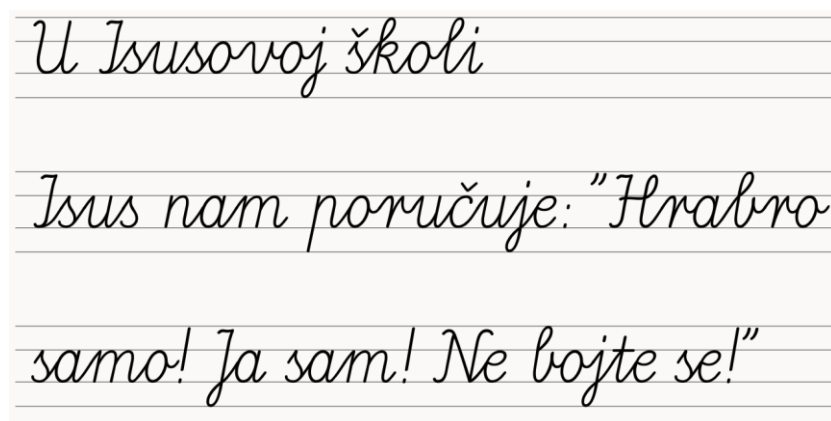 U Isusovoj školi
Isus nam poručuje: "Hrabro
samo! Ja sam! Ne bojte se!"